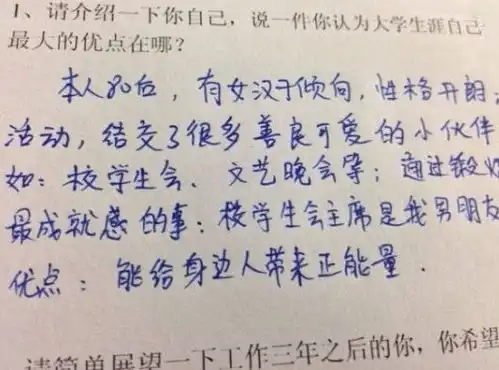 1、请介绍一下你自己，说一件你认为大学生涯自己
最大的优点在哪？
本人80后，有女汉子倾向，性格开朗；
活动，结交了很多善良可爱的小伙伴
如：校学生会、文艺晚会等；通过锻炼
最成就感的事：校学生会主席是我男朋友
优点：能给身边人带来正能量．
请简单展望一下工作三年之后的你，你希望